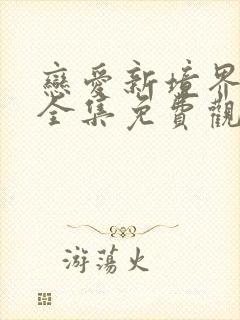 戀愛新境界
全集免費觀
游蕩火